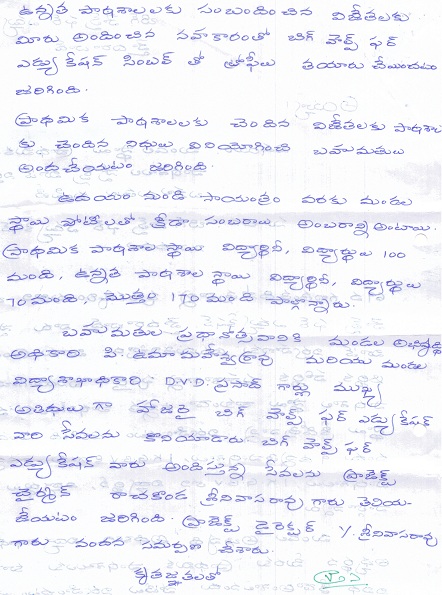 ఉన్నత పాఠశాలలకు సంబంధించిన విజేతలకు
మీరు అందించిన సహకారంతో బిగ్ హెల్ప్ ఫర్
ఎడ్యుకేషన్ సింబల్ తో త్రోఫీలు తయారు చేయించటం
జరిగింది.
ప్రాథమిక పాఠశాలలకు చెందిన విజేతలకు పాఠశాల
కు చెందిన నిధులు వినియోగించి బహుమతులు
అందచేయటం జరిగింది.
ఉదయం నుండి సాయంత్రం వరకు మండల
స్థాయి పోటీలలో క్రీడా సంబరాలు అంబరాన్ని అంటాయి.
ప్రాథమిక పాఠశాల స్థాయి విద్యార్థినీ, విద్యార్థులు 100
మంది, ఉన్నత పాఠశాల స్థాయి విద్యార్థినీ, విద్యార్థులు
70 మంది, మొత్తం 170 మంది పాల్గొన్నారు.
బహుమతుల ప్రధానోత్సవానికి మండల అభివృద్ధి
అధికారి పి. ఉమామహేశ్వరరావు మరియు మండల
విద్యాశాఖాధికారి D.V.D. ప్రసాద్ గార్లు ముఖ్య
అతిథులు గా హాజరై బిగ్ హెల్ప్ ఫర్ ఎడ్యుకేషన్
వారి సేవలను కొనియాడారు. బిగ్ హెల్ప్ ఫర్
ఎడ్యుకేషన్ వారు అందిస్తున్న సేవలను ప్రాజెక్ట్
చైర్మన్ రాచకొండ శ్రీనివాసరావు గారు తెలియ-
జేయటం జరిగింది. ప్రాజెక్ట్ డైరెక్టర్ Y. శ్రీనివాసరావు
గారు వందన సమర్పణ చేశారు.
కృతజ్ఞతలతో